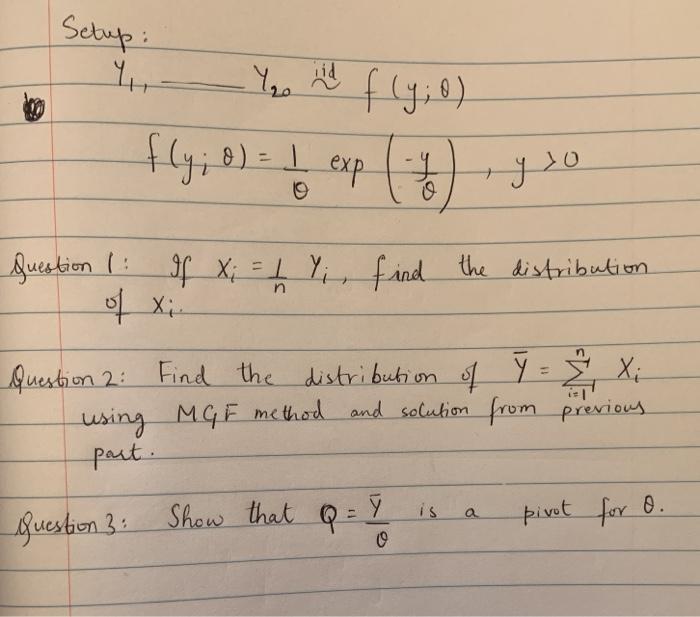 Setup:
Y₁, —— Y₂₀ iid ~ f(y;θ)
f(y;θ) = 1/θ exp(-y/θ), y>0
Question 1: If Xi = 1/n Yi, find the distribution
of Xi.
Question 2: Find the distribution of Ȳ = Σ_{i=1}^{n} Xi
using MGF method and solution from previous
part.
Question 3: Show that Q = Ȳ/θ is a pivot for θ.